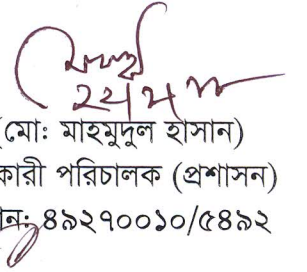 (মো: মাহমুদুল হাসান)
কারী পরিচালক (প্রশাসন)
ন: ৪৯২৭০০১০/৫৪৯২